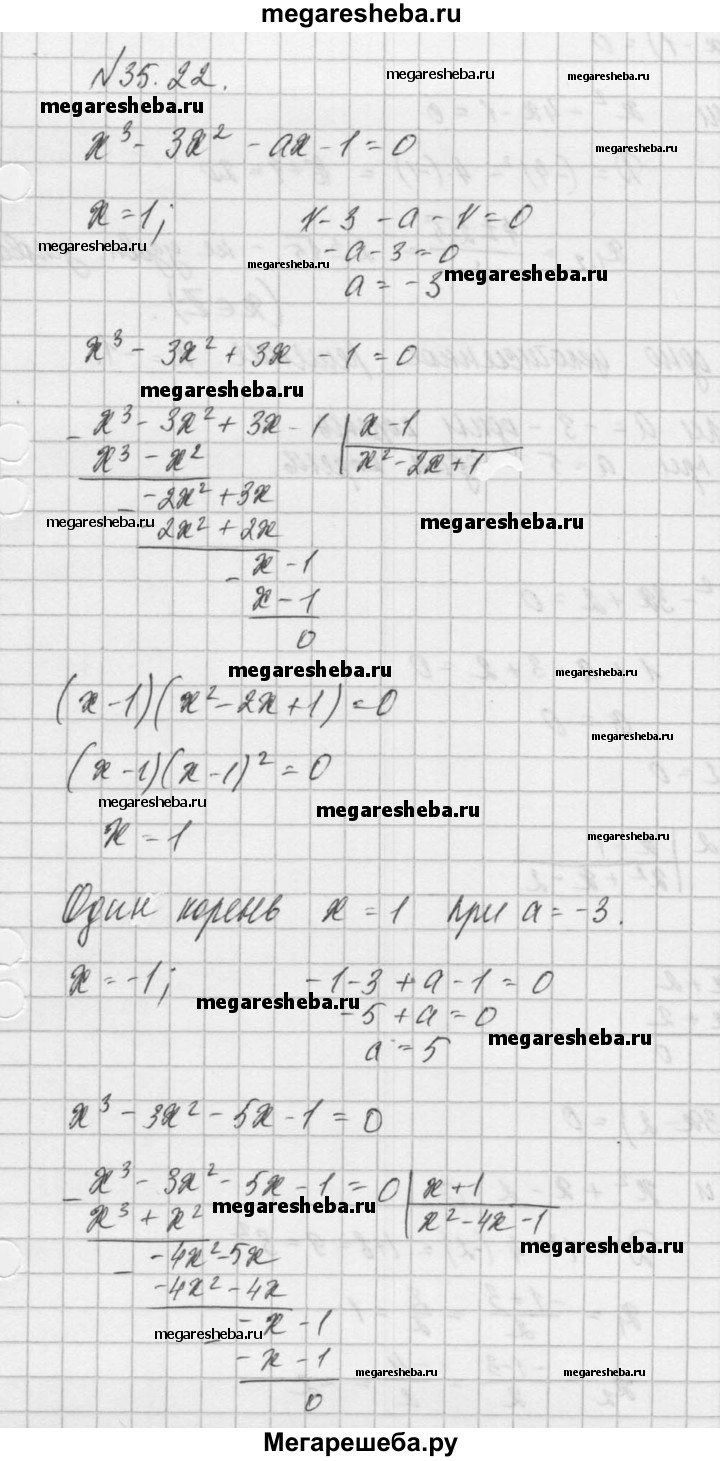 megaresheba.ru
№35.22.
megaresheba.ru megaresheba.ru
megaresheba.ru
x³ - 3x² - ax - 1 = 0
megaresheba.ru
x = 1; 1 - 3 - a - 1 = 0
megaresheba.ru
- a - 3 = 0
megaresheba.ru megaresheba.ru
a = -3
x³ - 3x² + 3x - 1 = 0
megaresheba.ru
- x³ - 3x² + 3x - 1 | x - 1
x³ - x² x² - 2x + 1
- -2x² + 3x
megaresheba.ru megaresheba.ru
2x² + 2x
- x - 1
x - 1
0
megaresheba.ru megaresheba.ru
(x - 1)(x² - 2x + 1) = 0
megaresheba.ru
(x - 1)(x - 1)² = 0
megaresheba.ru megaresheba.ru
x = 1
megaresheba.ru
Один корень x = 1 при a = -3.
x = -1; -1 - 3 + a - 1 = 0
megaresheba.ru
-5 + a = 0
megaresheba.ru
a = 5
x³ - 3x² - 5x - 1 = 0
- x³ - 3x² - 5x - 1 = 0 | x + 1
megaresheba.ru
x³ + x² x² - 4x - 1
megaresheba.ru
- -4x² - 5x
-4x² - 4x
megaresheba.ru
- -x - 1
-x - 1
megaresheba.ru megaresheba.ru
0
Мегарешеба.ру